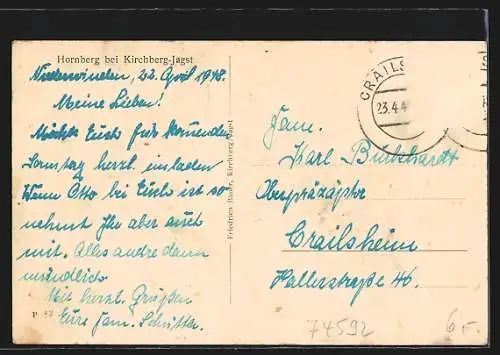 Hornberg bei Kirchberg-Jagst
Niederwinden, 22. April 1948.
Meine Lieben!
Möchte Euch für kommenden
Samstag herzl. einladen
Wenn Otto bei Euch ist so
nehmt Ihn aber auch
mit. Alles andre dann
mündlich
Mit herzl. Grüßen
Eure Fam. Schütter.
P 42
Friedrich Bauer, Kirchberg-Jagst
CRAILS
23.4.4
Fam.
Karl Burkhardt
Oberpräzeptor
Crailsheim
Hallerstraße 46.
74592
6,-